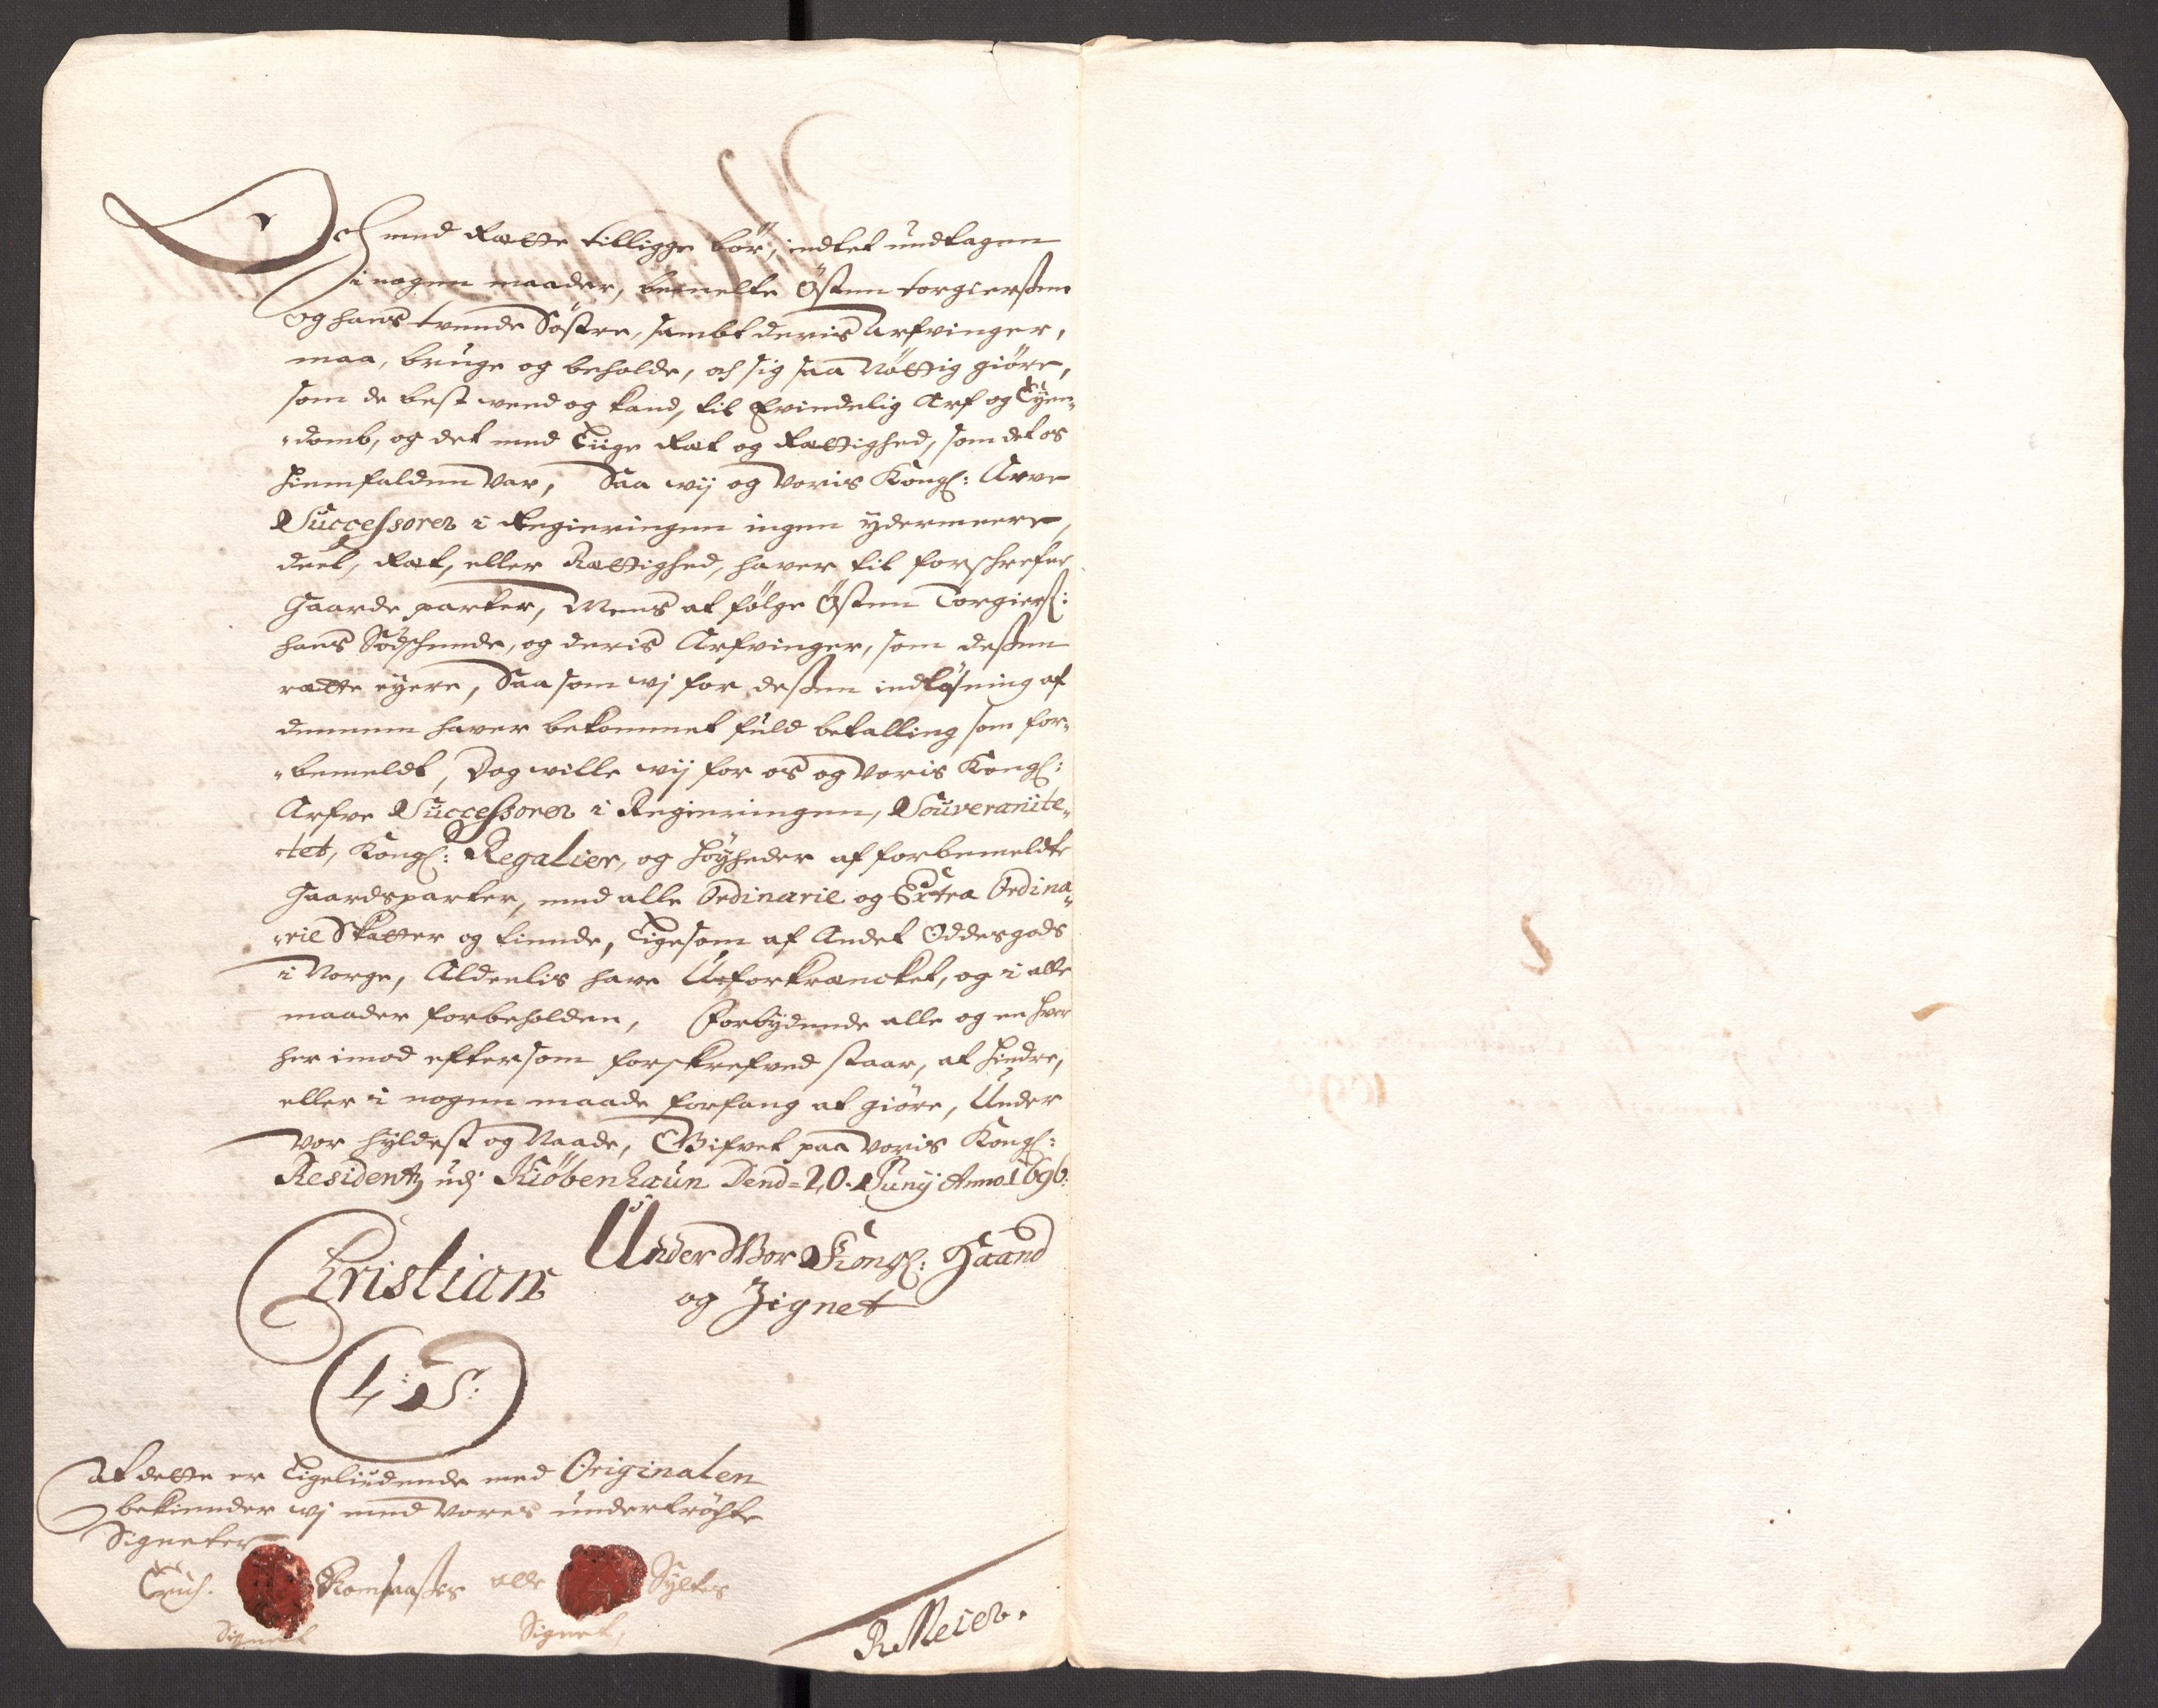 Och med Rætte tilligge bör, indtet undtagen
i nogen maader, bemelte Östen torgiersßen
og hans tvende Söstre, sambt deris Arfvinger,
maa, bruge og beholde, och sig saa Nöttig giöre,
som de best veed og kand, til Evindelig Arf og Eyen-
-domb, og det med Liige Ræt og Rættighed, som det os
hiemfalden var, Saa wij og Voris Kongl: Arve
Successorer i Regieringen ingen ydermeere,
deel, Ræt, eller Rættighed, haver til forschrefne
Gaarde parter, Mens at følge Östen Torgierß:
hans Södschende, og deris Arfvinger, som deßen
rætte eyere, Saa som wj for deßen indløsning af
dennem haver bekommet fuld betalling som for-
-bemeldt, Dog wille wij for os og Voris Kongl:
Arfve Successorer i Regieringen, Souveranite-
-tet, Kongl: Regalier, og höyheder af forbemeldte
Gaardsparter, med alle Ordinarie og Extra Ordina-
-rie Skatter og tiende, Ligesom af Andet Oddesgods
i Norge, Aldeelis have Uforkrencket, og i alle
maader forbeholden, Forbydende alle og en hver
her imod eftersom forskrefved staar, at hindre,
eller i nogen maade forfang at giöre, Under
vor hyldest og Naade, Gifvet paa Voris Kongl:
Residentz udj Kiöbenhaun Dend=20. Junij Anno.1696.
Under Vor Kongl: Haand
og Zignet
Christian
L: S:
At dette er Ligelüdende med Originalen
bekiender wj med Vores undertröchte
Signeter
Erich. Signet
Olle Syltes
Signet,
R Meier.